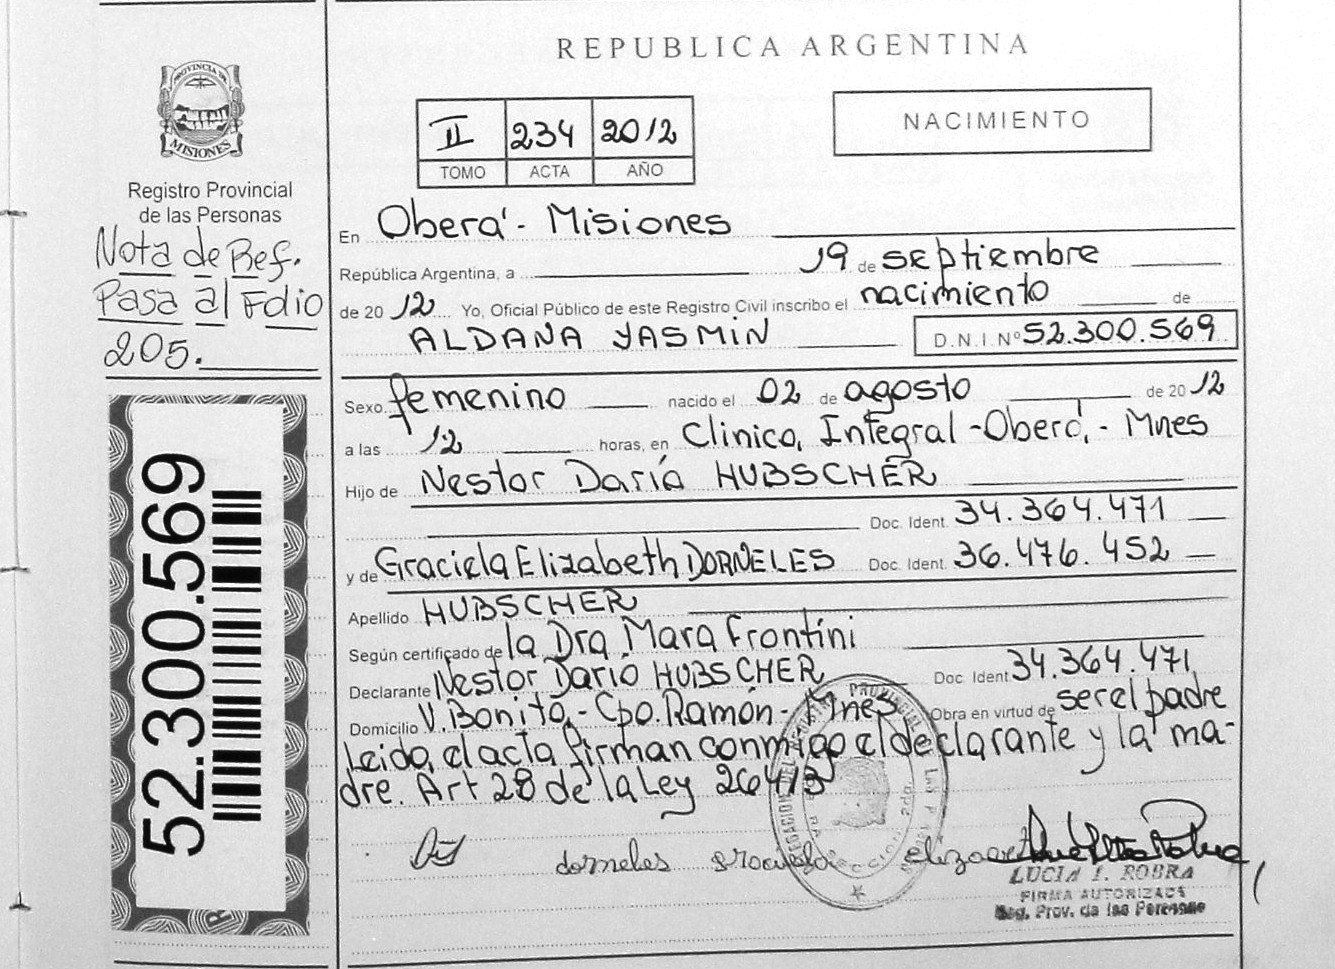 REPUBLICA ARGENTINA
PROVINCIA DE
MISIONES
Registro Provincial
de las Personas
Nota de Ref.
Pasa al Folio
205.
52.300.569
II 234 2012
TOMO ACTA AÑO
NACIMIENTO
En Oberá - Misiones
República Argentina, a 19 de septiembre
de 2012 Yo, Oficial Público de este Registro Civil inscribo el nacimiento de
ALDANA YASMIN D.N.I.Nº 52.300.569
Sexo femenino nacido el 02 de agosto de 2012
a las 12 horas, en Clinica Integral - Oberá - Mnes
Hijo de Nestor Darío HUBSCHER
Doc. Ident. 34.364.471
y de Graciela Elizabeth DORNELES Doc. Ident. 36.476.452
Apellido HUBSCHER
Según certificado de la Dra. Mara Frontini
Declarante Nestor Darío HUBSCHER Doc. Ident 34.364.471
Domicilio V. Bonita - Cpo. Ramón - Mnes Obra en virtud de ser el padre
Leida el acta firman conmigo el declarante y la ma-
dre. Art 28 de la Ley 26413
dorneles graciela elizabeth
LUCIA I. ROBRA
FIRMA AUTORIZADA
Reg. Prov. de las Personas